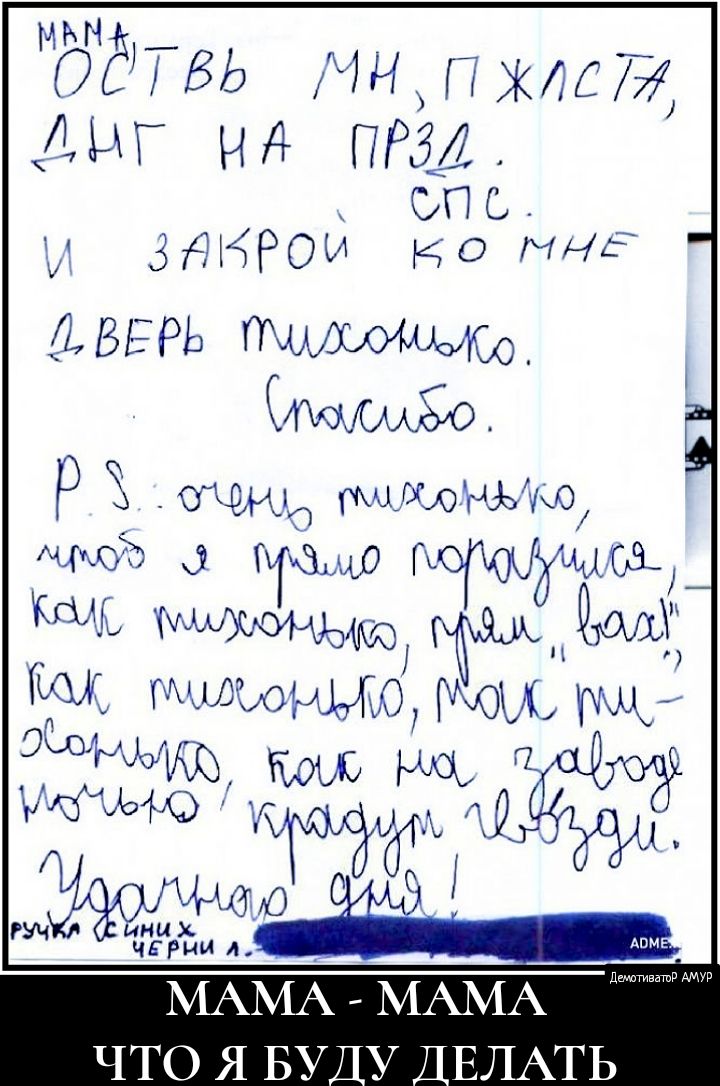 МАМА,
ОСТВЬ МН, ПЖЛСТА,
ДНГ НА ПРЗД.
СПС.
И ЗАКРОЙ КО МНЕ
ДВЕРЬ тихонько.
Спасибо.
P.S.: очень тихонько,
чтоб я прямо поразился,
как тихонько, прям „вах!",
как тихонько, так ти-
хонько, как на заводе
ночью крадут гвозди.
Удачного дня!
РУЧКА СИНИХ
ЧЕРНИЛ.
ADME
ДемотиватоР АМУР
МАМА - МАМА
ЧТО Я БУДУ ДЕЛАТЬ